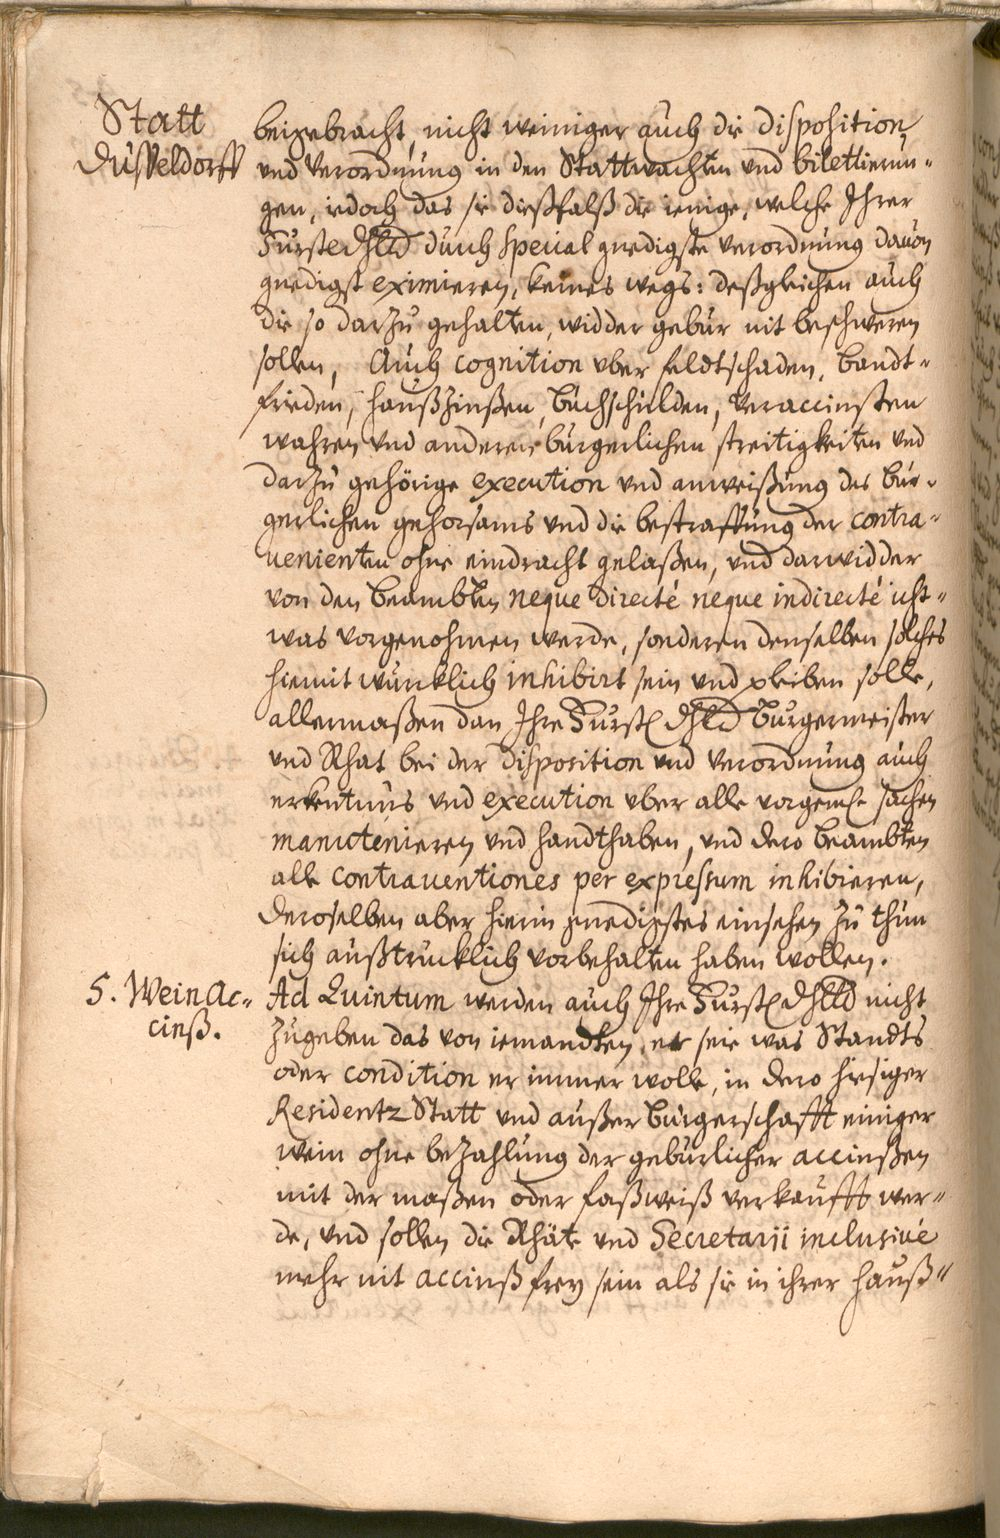 Statt
Düsseldorff
beigebracht, nicht weiniger auch die disposition
vnd verordnung in den Stattwachten vnd bilettierun-
gen, iedoch das sie dießfalß die ienige, welche Ihrer
Fürstl dhlld durch special gnedigste verordnung dauon
gnedigst eximieren, keines wegs: deßgleichen auch
die so darzu gehalten, widder gebür nit beschweren
sollen, Auch cognition vber feldtschaden, bandt-
frieden, haußzinßen, buchschulden, veraccinsten
wahren vnd anderen bürgerlichen streitigkeiten vnd
darzu gehörige execution vnd anweißung des bür-
gerlichen gehorsams vnd die bestraffung der contra-
uenienten ohne eindracht gelaßen, vnd darwidder
von den beambten neque directé neque indirecté icht-
was vorgenohmen werde, sonderen denselben solches
hiemit würcklich inhibirt sein vnd pleiben solle,
allermaßen dan Ihre Fürstl dhld Burgermeister
vnd Rhat bei der disposition vnd verordnung auch
erkentnus vnd execution vber alle vorgemel. sachen
manutenieren vnd handthaben, vnd dero beambten
alle contrauentiones per expressum inhibieren,
deroselben aber hierin gnedigstes einsehen zu thun
sich außtrucklich vorbehalten haben wollen.
5. Wein Ac-
cinß.
Ad Quintum werden auch Ihre Fürstl dhlld nicht
zugeben das von iemandten, er seie was Standts
oder condition er immer wolle, in dero hiesiger
Residentz Statt vnd außer bürgerschafft einiger
wein ohne bezahlung der gebürlicher accinßen
mit der maßen oder faßweiß verkaufft wer-
de, vnd sollen die Rhäte vnd Secretarii inclusiué
mehr nit accinßfrey sein als sie in ihrer hauß-